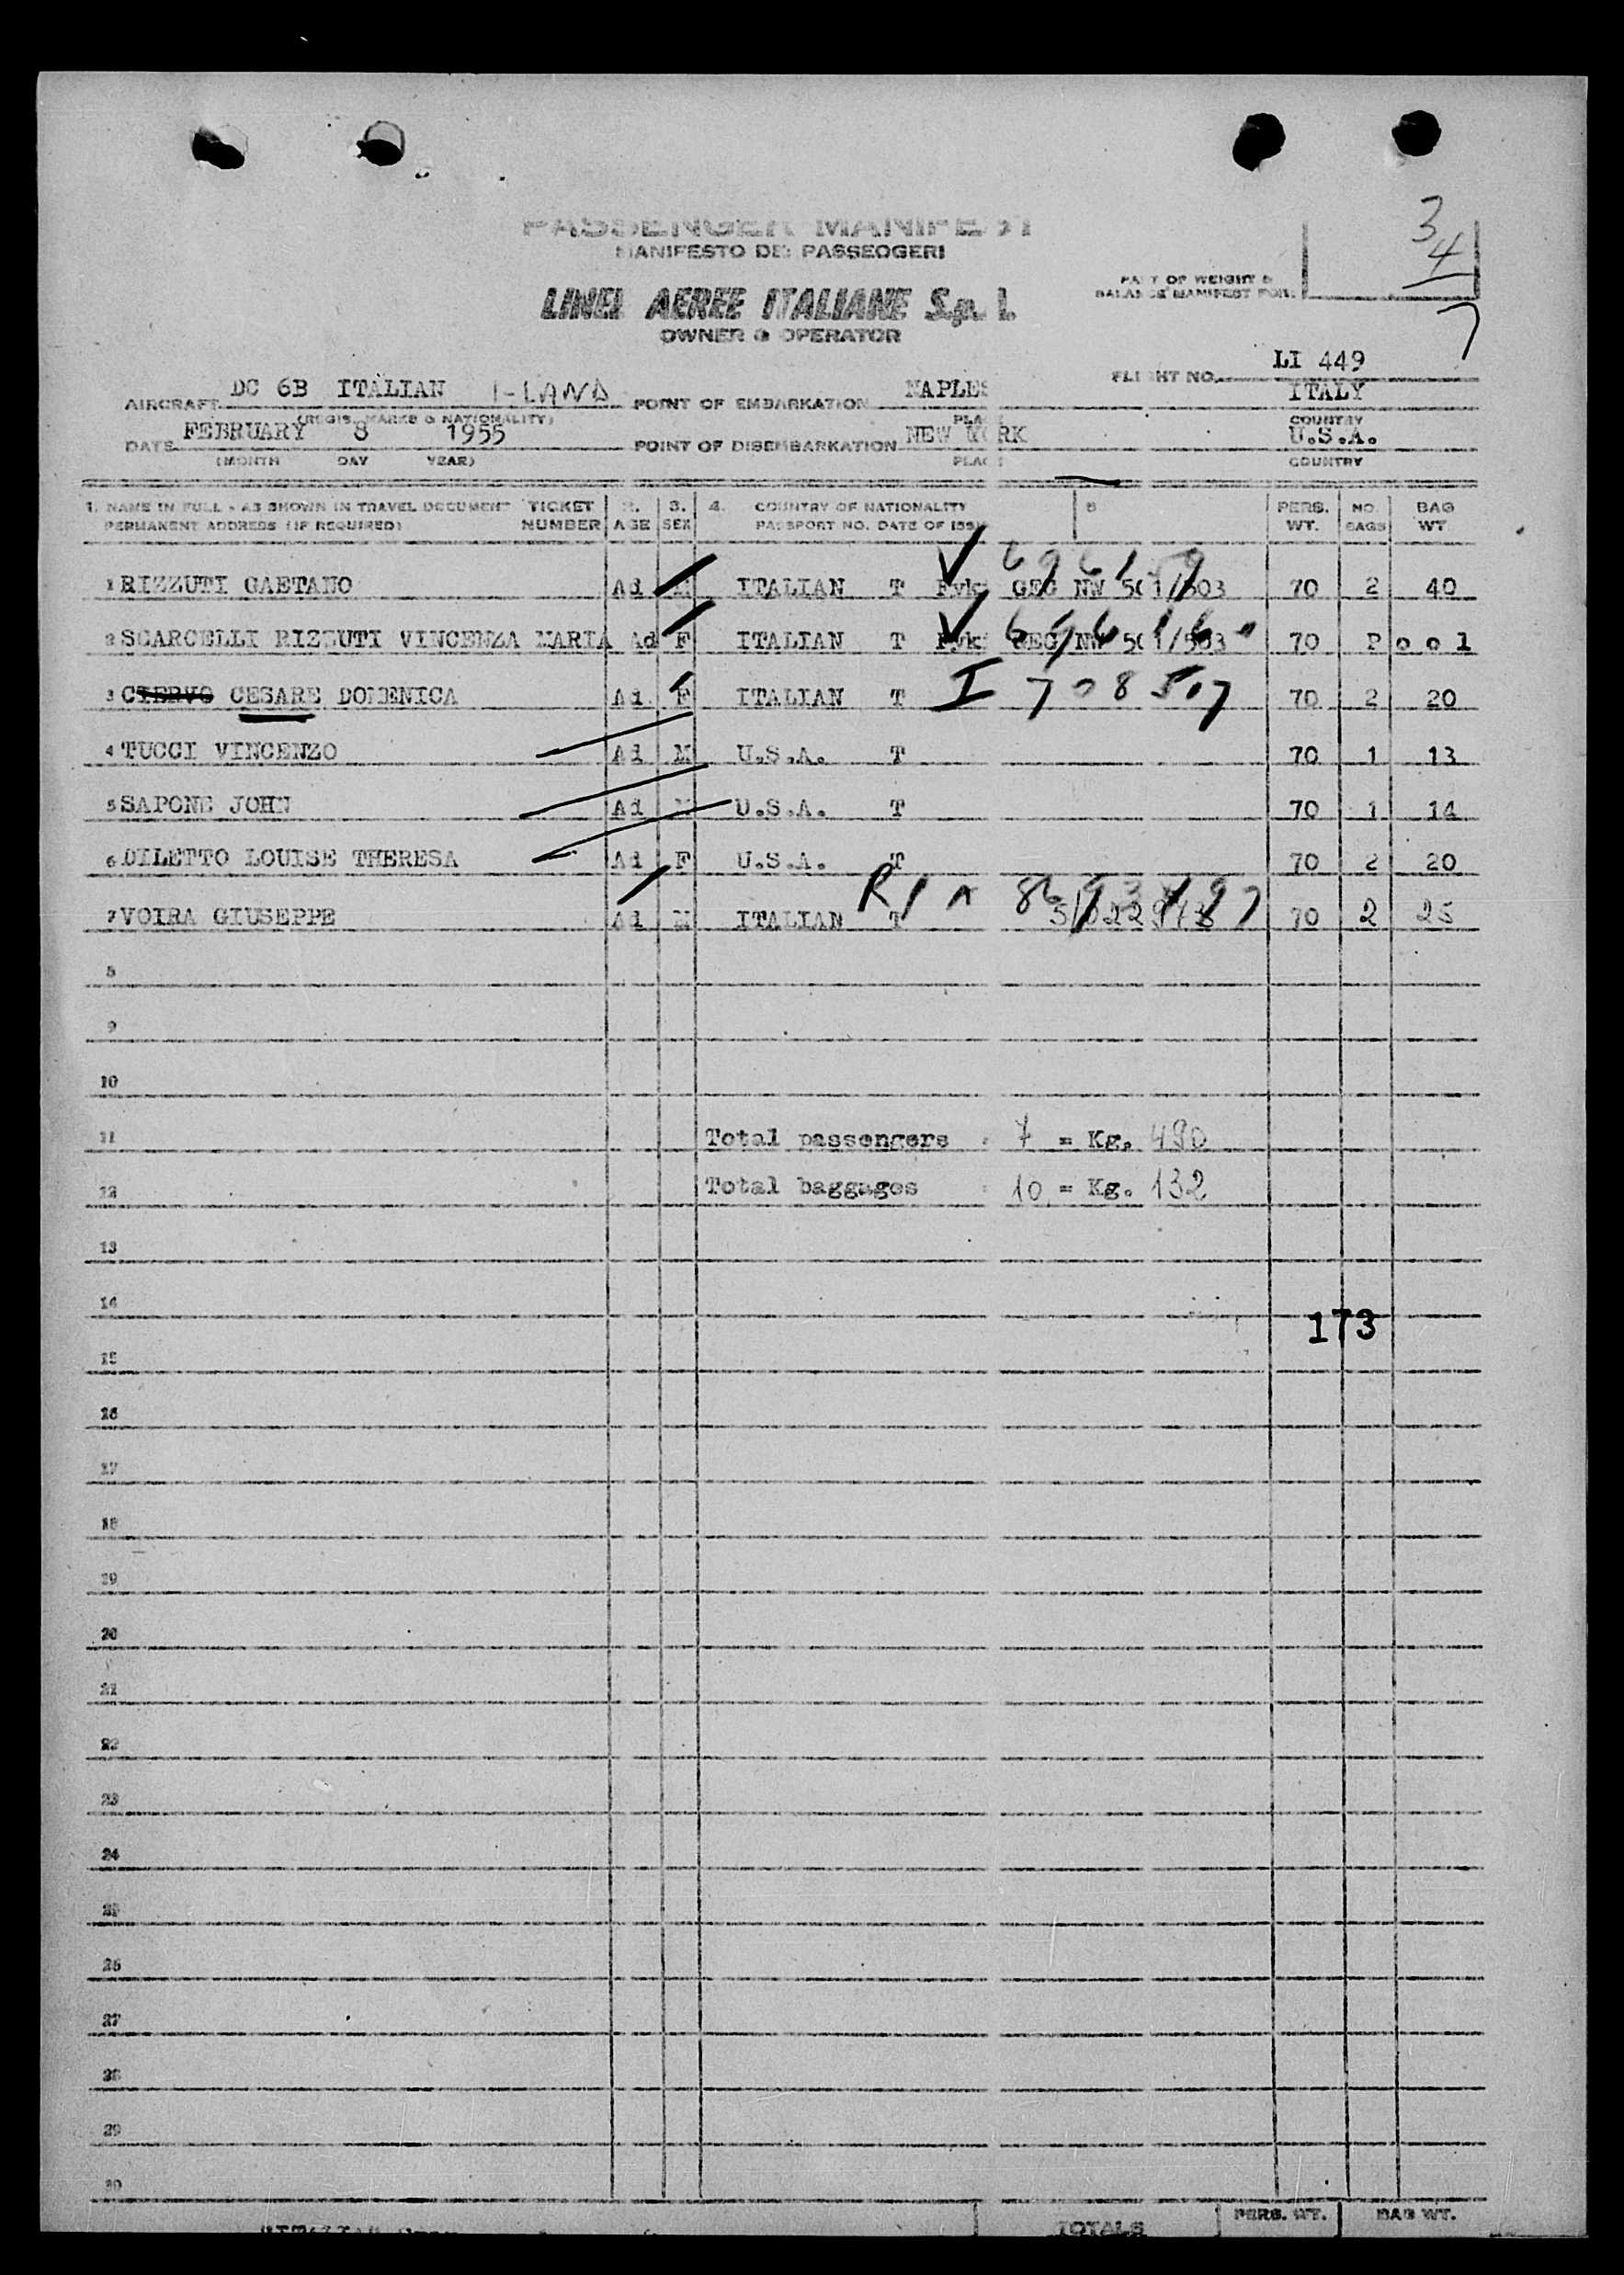 PASSENGER MANIFEST
MANIFESTO DEI PASSEOGERI
LINEE AEREE ITALIANE S.p.A.
OWNER & OPERATOR
3
4
7
PART OF WEIGHT &
BALANCE MANIFEST FOR:
FLIGHT NO. LI 449
AIRCRAFT DC 6B ITALIAN I-LAND POINT OF EMBARKATION NAPLES ITALY
(REGIS. MARKS & NATIONALITY) PLACE COUNTRY
DATE FEBRUARY 8 1955 POINT OF DISEMBARKATION NEW YORK U.S.A.
(MONTH DAY YEAR) PLACE COUNTRY
1. NAME IN FULL - AS SHOWN IN TRAVEL DOCUMENT TICKET 2. 3. 4. COUNTRY OF NATIONALITY PERS. NO. BAG
PERMANENT ADDRESS (IF REQUIRED) NUMBER AGE SEX PASSPORT NO. DATE OF ISSUE WT. BAGS WT.
1 RIZZUTI GAETANO Ad M ITALIAN T 70 2 40
2 SCARCELLI RIZZUTI VINCENZA MARIA Ad F ITALIAN T 70 Pool
3 CIERVO CESARE DOMENICA Ad F ITALIAN T I 708507 70 2 20
4 TUCCI VINCENZO Ad M U.S.A. T 70 1 13
5 SAPONE JOHN Ad M U.S.A. T 70 1 14
6 DILETTO LOUISE THERESA Ad F U.S.A. T 70 2 20
7 VOIRA GIUSEPPE Ad M ITALIAN T 70 2 25
8
9
10
11 Total passengers = 7 = Kg. 490
12 Total baggages = 10 = Kg. 132
13
14
173
15
16
17
18
19
20
21
22
23
24
25
26
27
28
29
30
TOTALS PERS. WT. BAG WT.